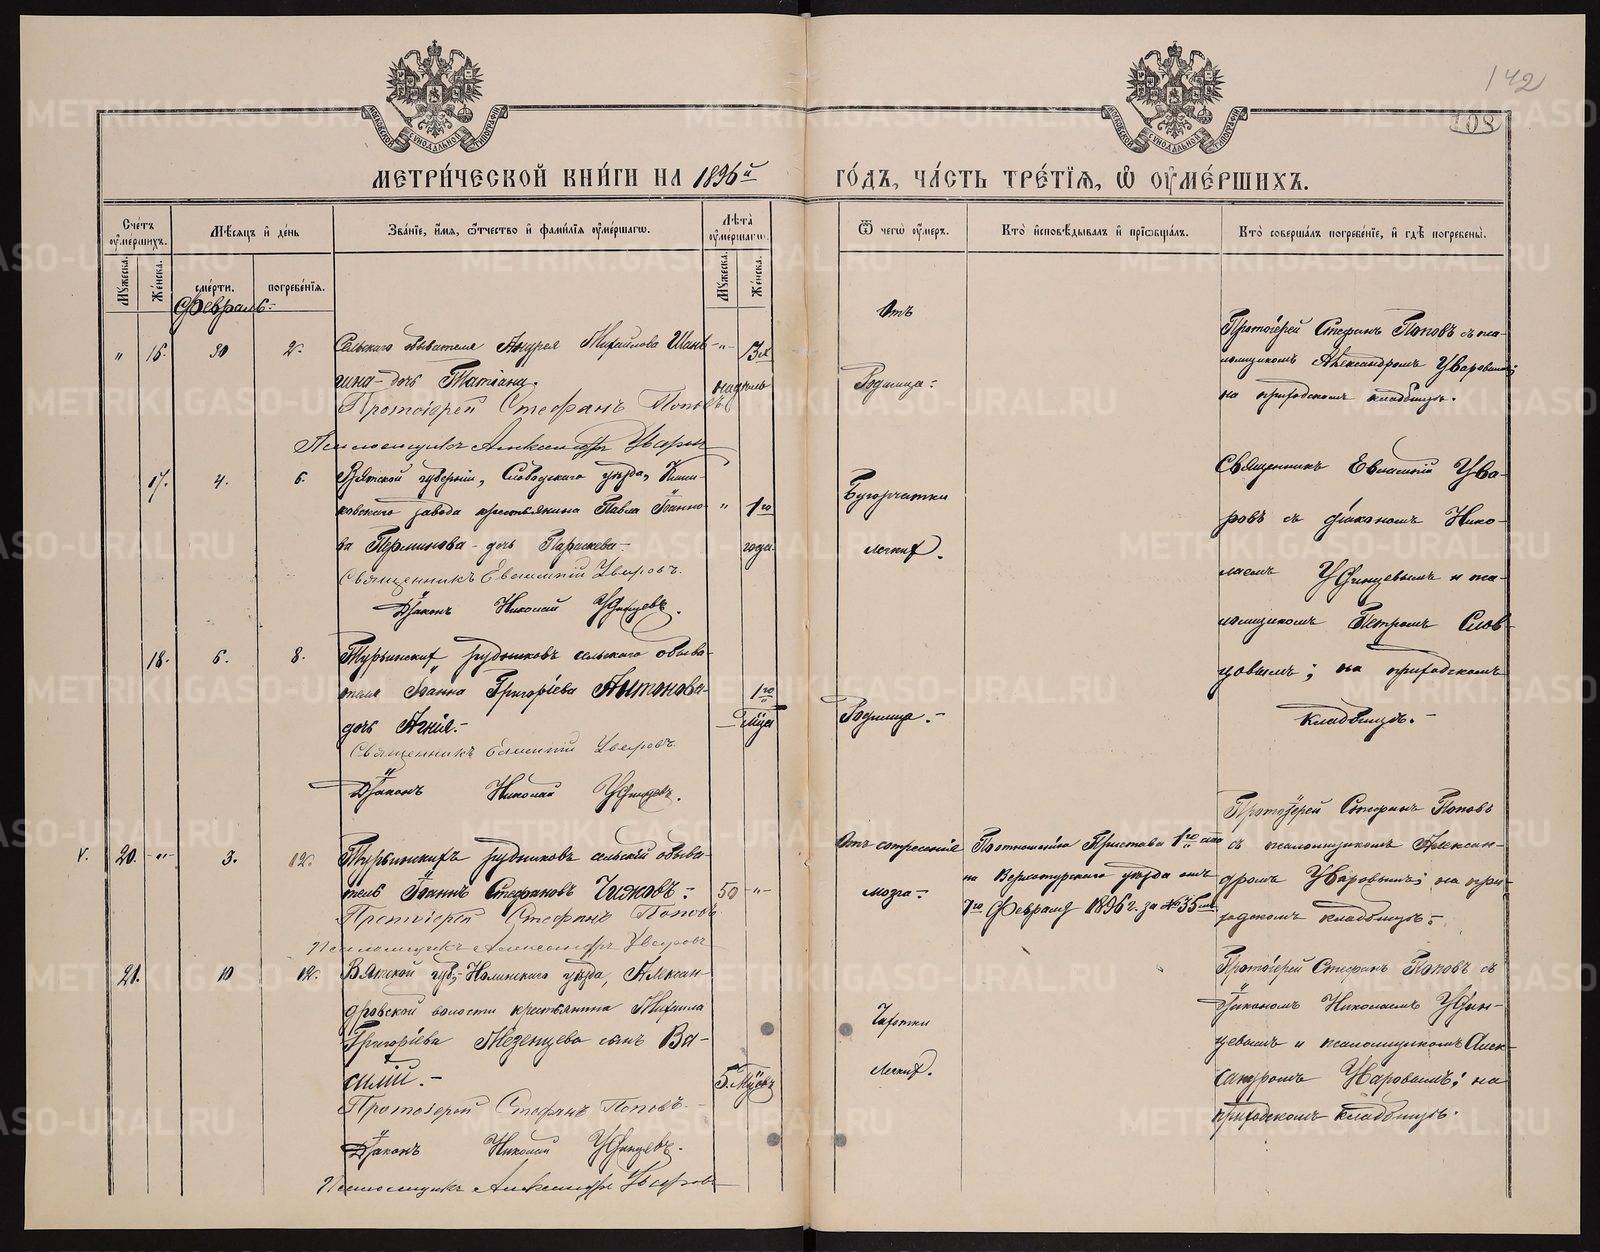 142
108
МЕТРИ́ЧЕСКОЙ КНИ́ГИ НА 1896й ГО́ДЪ, ЧА́СТЬ ТРЕ́ТІЯ, Ѽ ОУМЕ́РШИХЪ.
Сче́тъ оумершихъ.
Мѣсяцъ и де́нь
Зва́ніе, и́мя, ѻ҆́тчество и фами́лія оуме́ршагѡ.
Лѣта̀ оуме́ршагѡ.
Ѿ чегѡ̀ оу́меръ.
Кто̀ исповѣ́дывалъ и пріѡбща́лъ.
Кто̀ соверша́лъ погребе́ніе, и гдѣ̀ погребены̀.
Мꙋ́жеска.
Же́нска.
сме́рти.
погребе́нія.
Мꙋ́жеска.
Же́нска.
Февраль.
„ 16. 30 2. Сельскаго обывателя Андрея Михайлова Шань-
гина дочь Татіана.
Протоіерей Стефанъ Поповъ
Псаломщикъ Александръ Уваровъ
-„- 3х недѣль
Отъ
Родимца.
Протоіерей Стефанъ Поповъ съ пса-
ломщикомъ Александромъ Уваровымъ;
на приходскомъ кладбищѣ.
17. 4. 6. Вятской губерніи, Слободскаго уѣзда,
ковскаго завода крестьянина Павла Іоанно-
ва Перминова дочь Параскева.
Священникъ Евлампій Уваровъ.
Діаконъ Николай Удинцевъ.
„ 1го года.
Бугорчатки
легкихъ.
Священникъ Евлампій Ува-
ровъ съ діакономъ Нико-
лаемъ Удинцевымъ и пса-
ломщикомъ Петромъ Слов-
цовымъ; на приходскомъ
кладбищѣ.
18. 6. 8. Турьинскихъ рудниковъ сельскаго обыва-
теля Іоанна Григоріева Антонова
дочь Агнія.
Священникъ Евлампій Уваровъ
Діаконъ Николай Удинцевъ.
1го м̃ца
Родимца.
V. 20. -„- 3. 12. Турьинскихъ рудниковъ сельскій обыва-
тель Іоаннъ Стефановъ Чижовъ.
Протоіерей Стефанъ Поповъ
Псаломщикъ Александръ Уваровъ
50 -„-
Отъ сотрясенія
мозга.
По отношенію Пристава 1го стана
Верхотурскаго уѣзда отъ
7го Февраля 1896 г. за № 35мъ.
Протоіерей Стефанъ Поповъ
съ псаломщикомъ Алексан-
дромъ Уваровымъ; на при-
ходскомъ кладбищѣ.
21. 10 12. Вятской губ., Нолинскаго уѣзда, Алексан-
дровской волости крестьянина Михаила
Григоріева Мезенцева сынъ Ва-
силій.
Протоіерей Стефанъ Поповъ
Діаконъ Николай Удинцевъ.
Псаломщикъ Александръ Уваровъ
5. м̃цевъ
Чахотки
легкихъ.
Протоіерей Стефанъ Поповъ съ
діакономъ Николаемъ Удин-
цевымъ и псаломщикомъ Алек-
сандромъ Уваровымъ; на
приходскомъ кладбищѣ.
METRIKI.GASO-URAL.RU